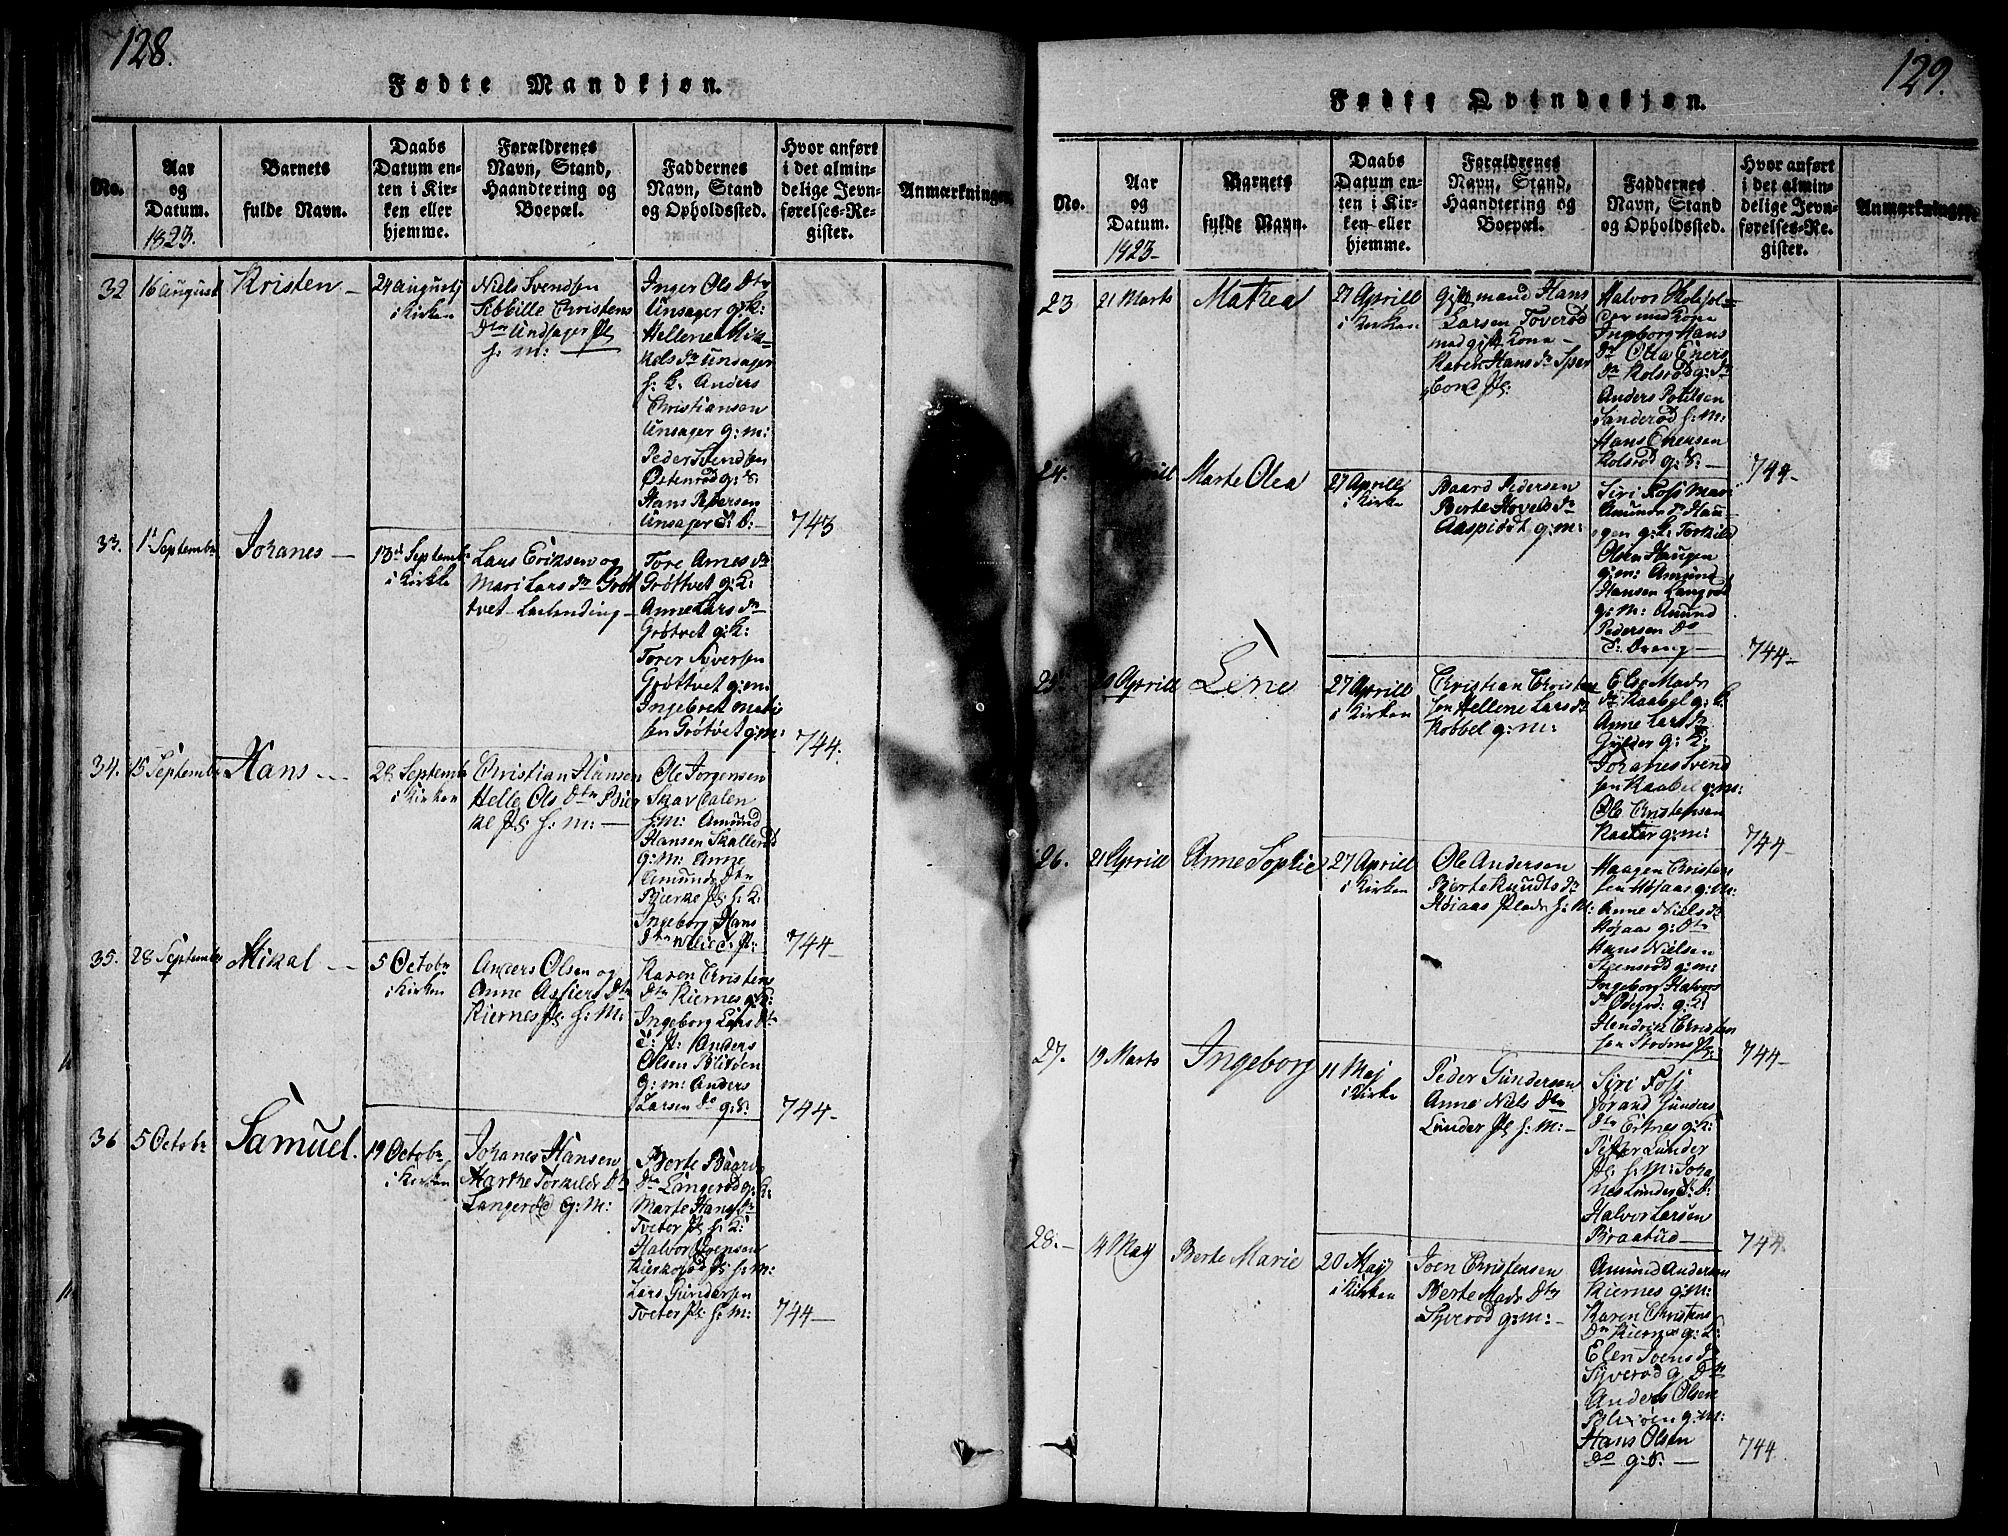 128.
Fødte Mandkjøn.
No.
Aar
og
Datum.
1823.
Barnets
fulde Navn.
Daabs
Datum en-
ten i Kir-
ken eller
hjemme.
Forældrenes
Navn, Stand,
Haandtering og
Boepæl.
Faddernes
Navn, Stand
og Opholdssted.
Hvor anført
i det almin-
delige Jevn-
førelses-Re-
gister.
Anmærkninger.
32
16 August
Kristen
24 August
i Kirken
Niels Svendsen
Sibbille Christens
Dtr Undsager Pl
f: m:
Inger Ols Dtr
Unsager g: K:
Hellene Mik
kels dr Unsager
f: K. Anders
Christiansen
Unsager g: m:
Peder Svendsen
Østenrød g: S:
Hans Pedersen
Unsager
743
33.
1 Septembr
Johanes
13 Septemb
i Kirkke
Lars Eriksen og
Mari Lars dr Grøt
tvet
Tore Arnes dr
Grøttvet g: K:
Anne Lars dr
Grøtvet g: K:
Torer Syversen
Grøttvet g: m:
Ingebret
sen Grøtvet g: m:
744.
34.
15 Septembr
Hans
28 Septemb
i Kirken
Christian Hansen
Helle Ols Dtr Bier
ke Pl: f: m:
Ole Jørgensen
Skavdalen
f: m: Amund
Hansen Skallerød
g: m: Anne
Amunds Dtr
Bierke Pl: f: K:
Ingeborg Hans
Dtr
744
35.
28 Septembr
Mikal
5 Octobr
i Kirken
Anders Olsen og
Anne Dtr
Kiernes Pl: f: M:
Karen Christens
Dtr Kiernes g: K:
Ingeborg Lars Dtr
Anders
Olsen
g: m: Anders
Larsen Do g: S:
744
36
5 Octobr
Samuel.
19 Octobr
i Kirken
Johanes Hansen
Marthe Torkilds Dtr
Langerød g: M:
Berte Baards
Dtr Langerød g: K:
Marte Hans dr
Tveter Pl f: K:
Halvor Joensen
Pl: f: M:
Lars Gundersen
Tveter Pl: f: M:
744
129.
Fødte Qvindekjøn.
No.
Aar
og
Datum.
1823
Barnets
fulde Navn.
Daabs
Datum en-
ten i Kir-
ken eller
hjemme.
Forældrenes
Navn, Stand,
Haandtering og
Boepæl.
Faddernes
Navn, Stand
og Opholdssted.
Hvor anført
i det almin-
delige Jevn-
førelses-Re-
gister.
Anmærkninger.
23
21 Marts
Mathea
27 Aprill
i Kirken
Giftmand Hans
Larsen Toverød
med gift Kona
Karen Hans dr
Pl:
Halvor
med Kona
Ingeborg Hans
dr Olea Eners
dr Kolsrød g: dr
Anders Povelsen
Sanderød f: M:
Hans Enersen
Kolsrød g: S:
744
24.
Marte Olea
27 Aprill
i Kirke
Baard Pedersen
Berte Hovels dr
g: m:
Siri Foss Mari
Amunds dr Hau
gen g: K: Torkild
Olsen Haugen
g: m: Amund
Hansen Langrød
g: m: Amund
Pedersen Do
Dreng
744
25.
Aprill
Lene
27 Aprill
i Kirken
Christian Christen
sen Hellene Lars dr
Kobbel g: m:
Else Mads
dr Kaabel g: K
Anne Lars dr
Gylder g: K:
Johanes Svend
sen Kaabel g: m:
Ole Christensen
g: m:
744
26.
21 Aprill
Anne Sophie
27 Aprill
i Kirken
Ole Andersen
Berte Knudts dr
Høiaas Plads f: M:
Haagen Christen
sen Høiaas g:
Anne Niels dr
Høiaas g:
Hans Nielsen
Steensrød g: m:
Ingeborg Halvors
dr g: K
Hendrik Christen
sen Pl:
744
27.
19 Marts
Ingeborg
11 Maj
i Kirke
Peder Gundersen
Anne Niels Dtr
Lunder Pl f: M:
Siri Foss
Jørand Gunders
Dtr g: K:
Petter Lunder
Pl f: M: Joha
nes Lunder
Halvor Larsen
Braatud
744
28.
14 May
Berte Marie
20 Maj
i Kirken
Joen Christensen
Berte Mads Dtr
Syverød g: m:
Amund Andersen
Kiernes g: M:
Karen Christens
Dr Kiernes g: K:
Elen Joens dr
Syverød g
Anders Olsen
g: m:
Hans Olsen
Do g: S:
744